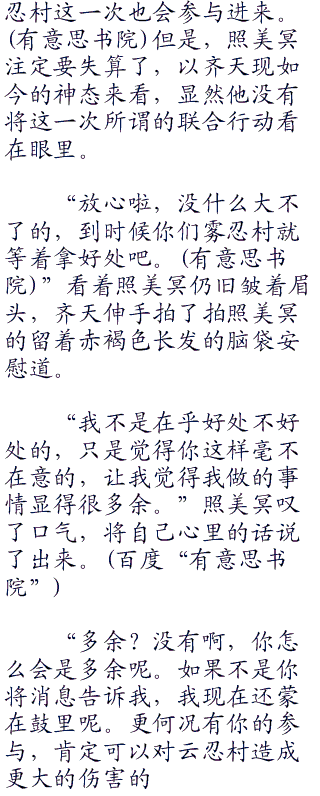 忍村这一次也会参与进来。
(有意思书院)但是，照美冥
注定要失算了，以齐天现如
今的神态来看，显然他没有
将这一次所谓的联合行动看
在眼里。
“放心啦，没什么大不
了的，到时候你们雾忍村就
等着拿好处吧。(有意思书
院)”看着照美冥仍旧皱着眉
头，齐天伸手拍了拍照美冥
的留着赤褐色长发的脑袋安
慰道。
“我不是在乎好处不好
处的，只是觉得你这样毫不
在意的，让我觉得我做的事
情显得很多余。”照美冥叹
了口气，将自己心里的话说
了出来。(百度“有意思书
院”)
“多余？没有啊，你怎
么会是多余呢。如果不是你
将消息告诉我，我现在还蒙
在鼓里呢。更何况有你的参
与，肯定可以对云忍村造成
更大的伤害的